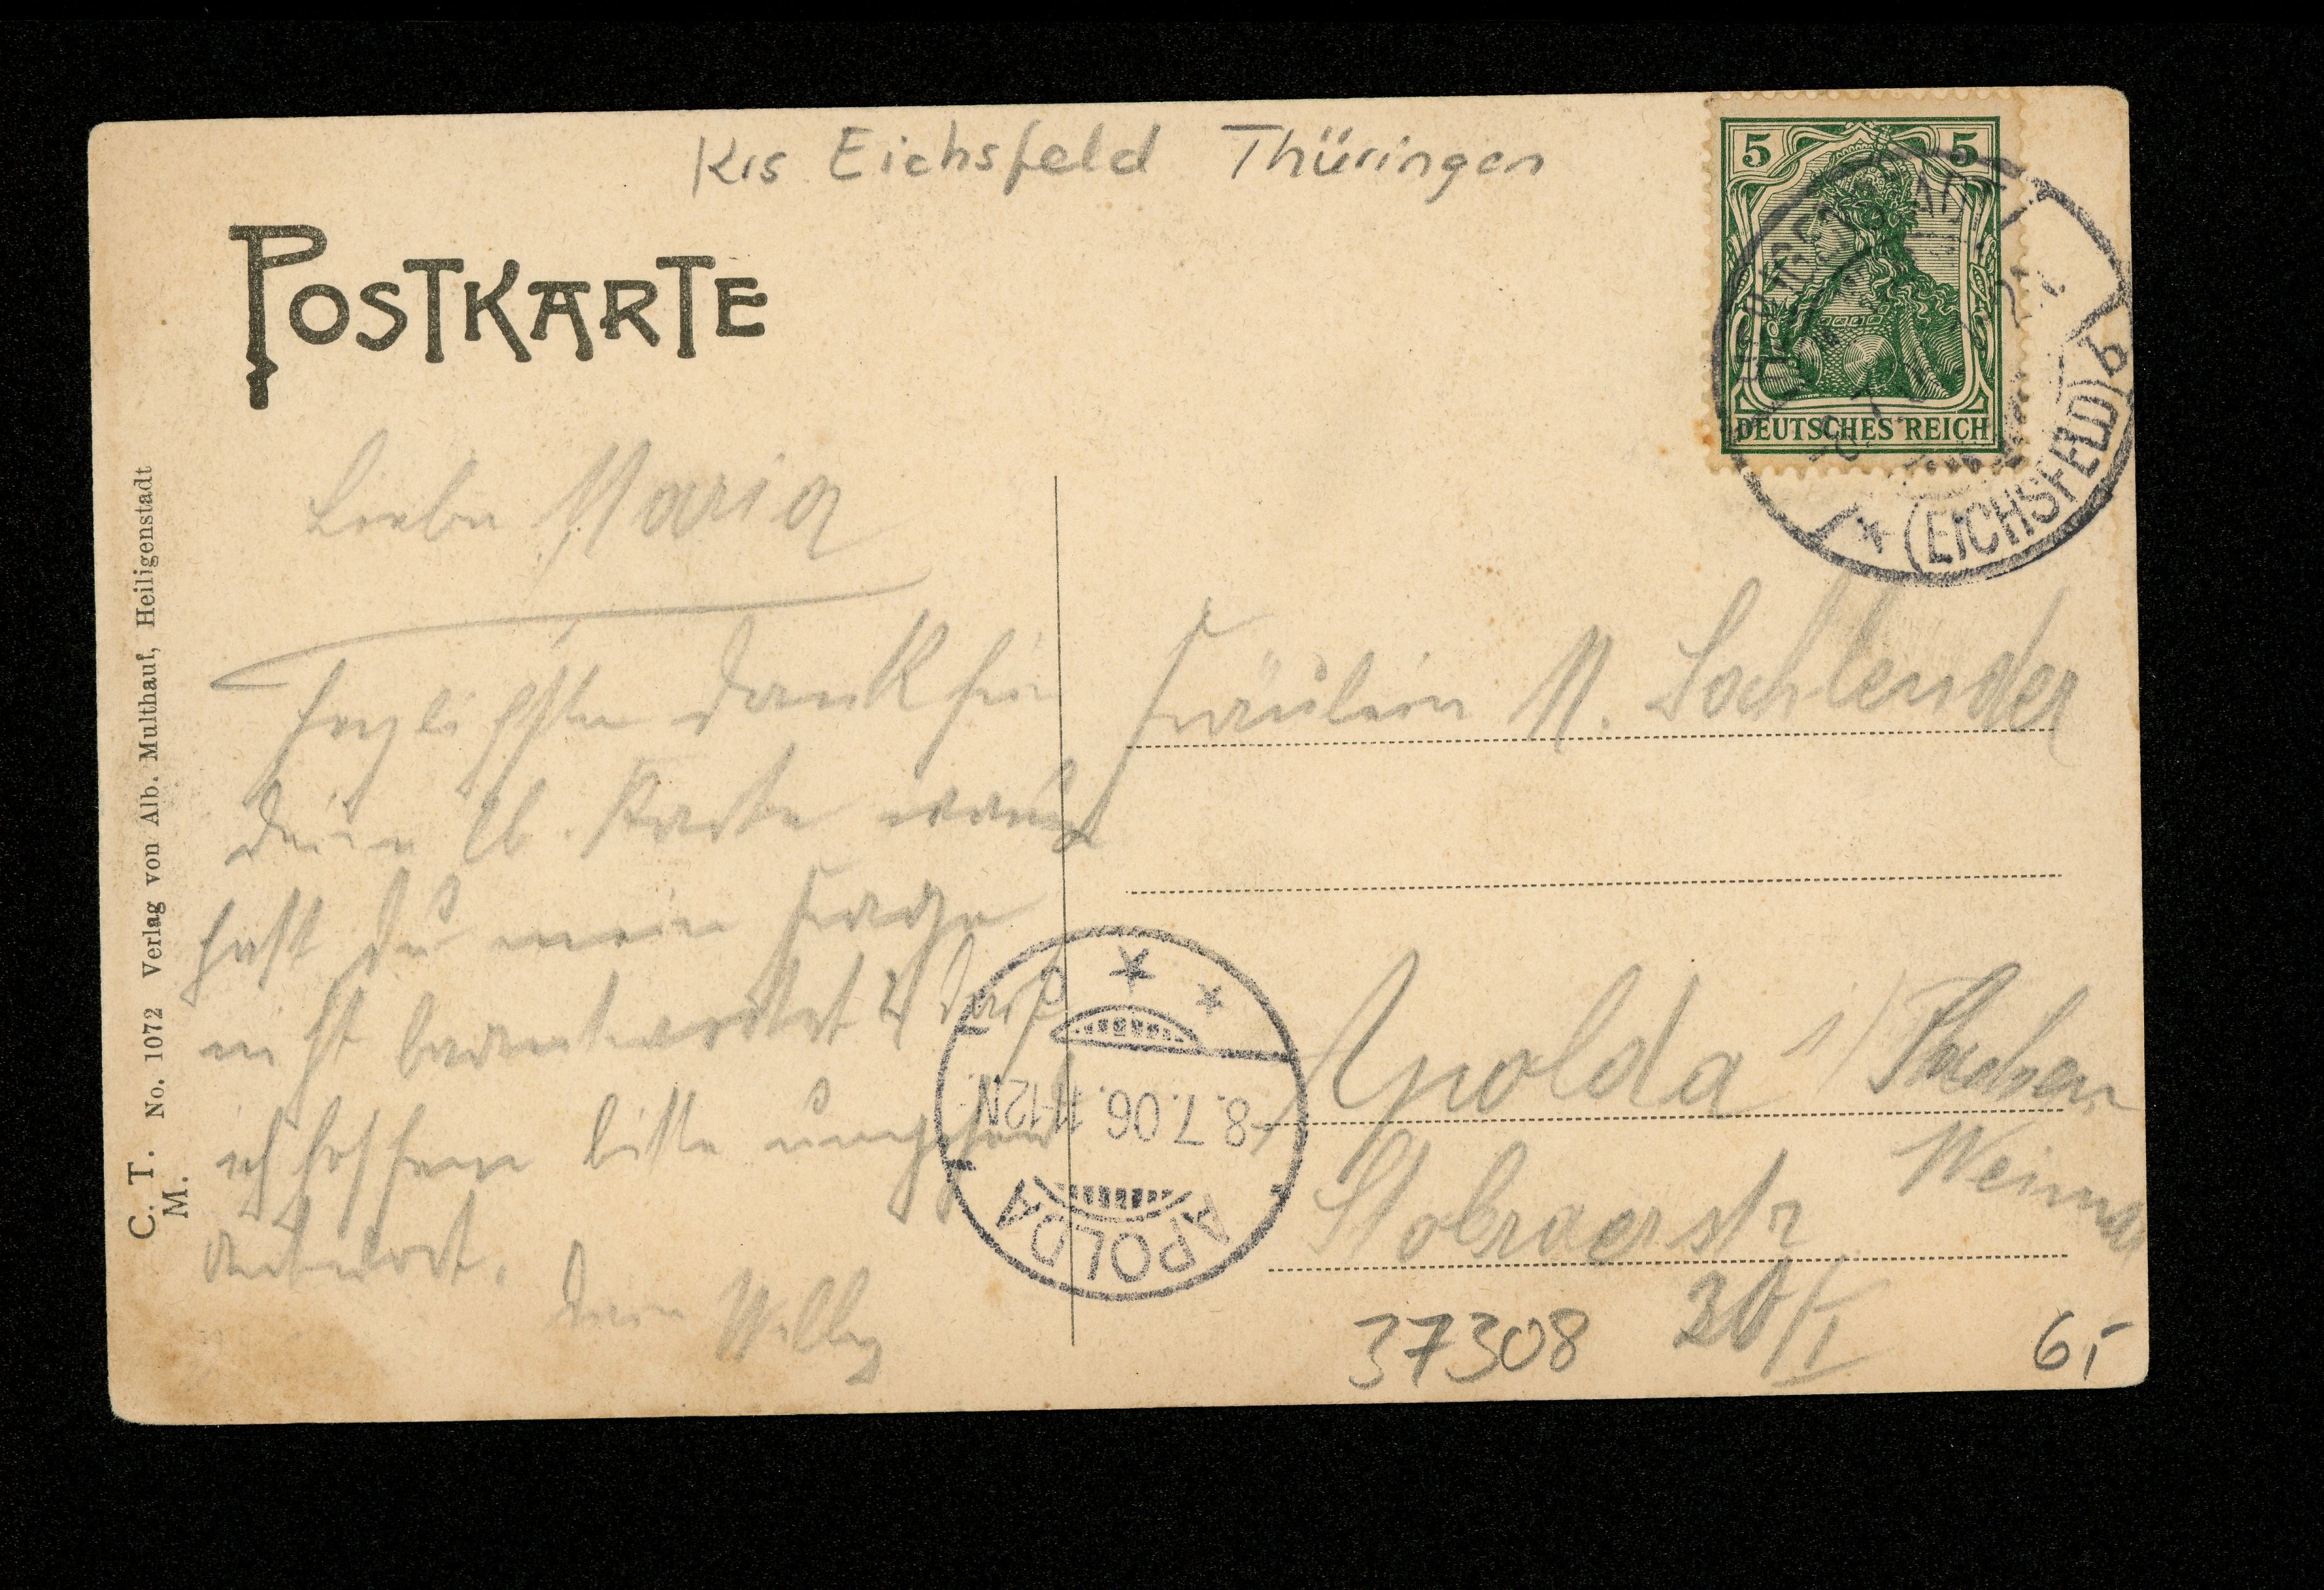 Krs Eichsfeld Thüringen
POSTKARTE
5 5
DEUTSCHES REICH
(EICHSFELD) b
Liebe Maria
Herzlichsten Dank für
deine lb. Karte warum
hast du meine Frage
nicht beantwortet? Darf
ich hoffen bitte umgehend
Antwort.
Dein Willy
Fräulein M. Sachlender
Apolda i/ Sachsen
Weimar
Stobraerstr
20/I
37308
6,-
* * c
-8.7.06. 11-12N.
APOLDA
C. T. M. No. 1072 Verlag von Alb. Multhauf, Heiligenstadt